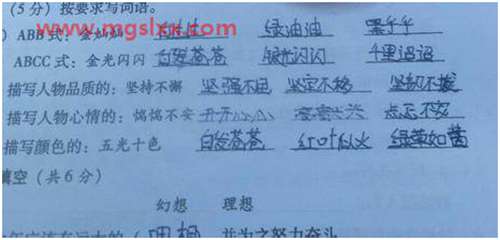 (5分) 按要求写词语。
www.mgslxx.com
) ABB 式: 金灿灿 绿油油 黑乎乎
ABCC 式: 金光闪闪 白发苍苍 银光闪闪 千里迢迢
描写人物品质的: 坚持不懈 坚强不屈 坚定不移 坚韧不拔
描写人物心情的: 惴惴不安
描写颜色的: 五光十色 白发苍苍 红叶似火 绿草如茵
填空 (共6分)
幻想 理想
并为之努力奋斗